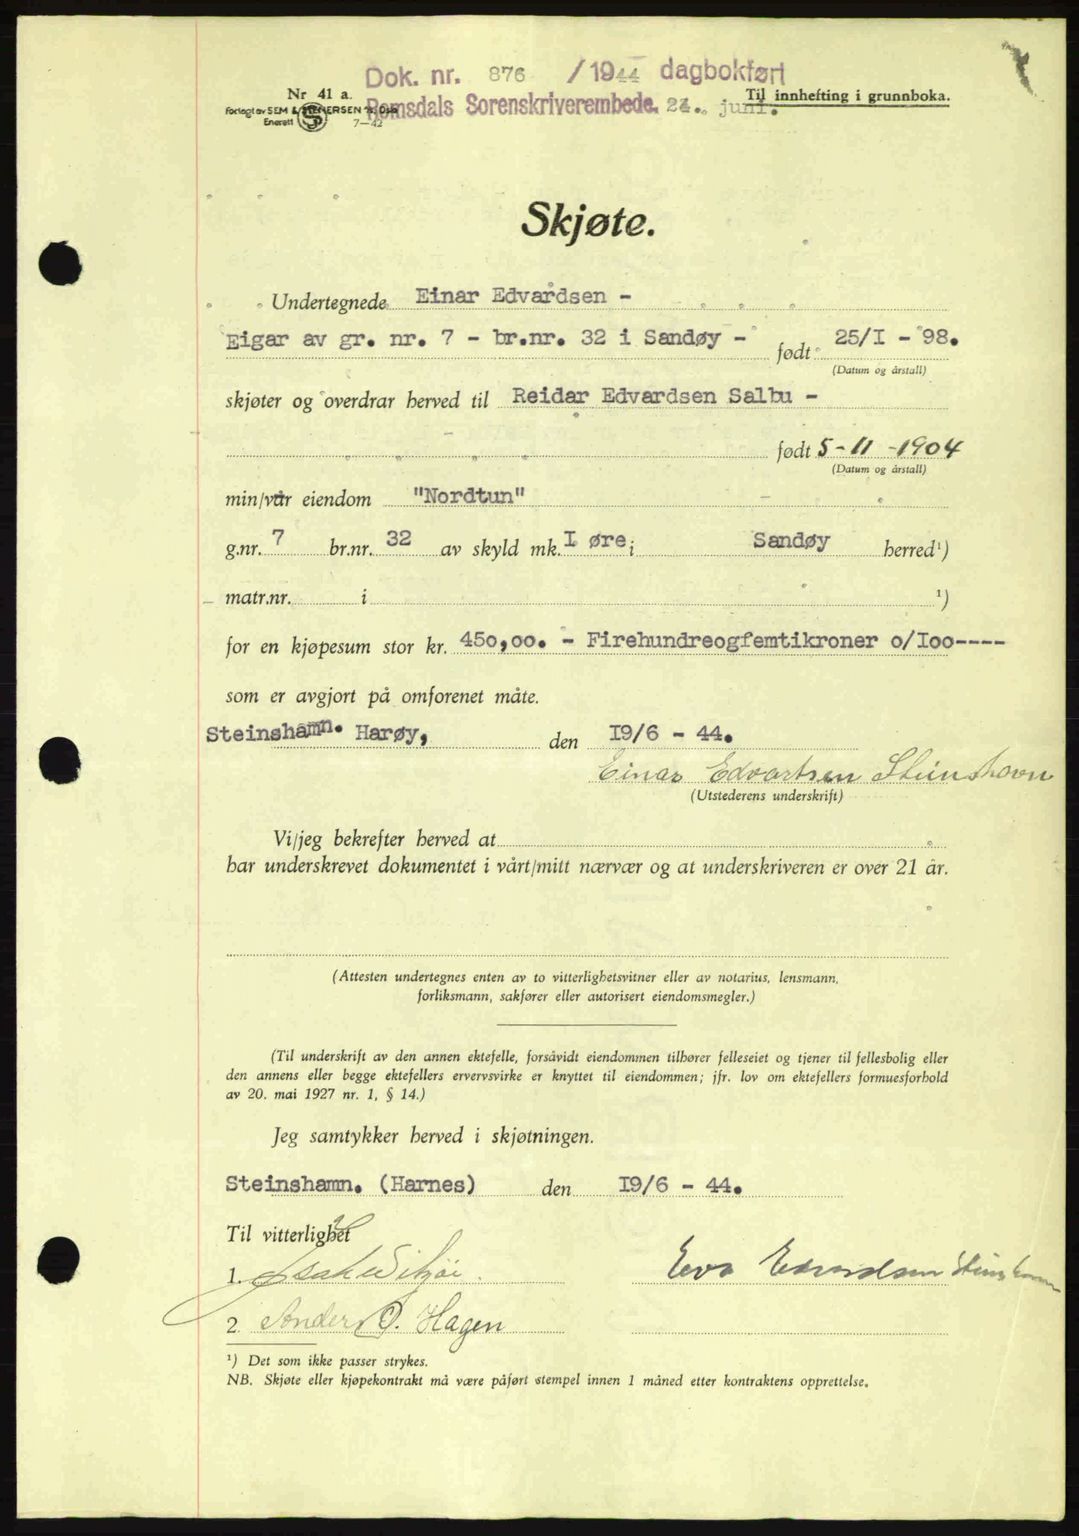 Dok. nr. 876 /1944 dagbokført
Nr 41 a.
Til innhefting i grunnboka.
Forlagt av SEM & STENERSEN A/S, Oslo
Romsdals Sorenskriverembede. 24. juni.
Enerett 7-42
Skjøte.
Undertegnede Einar Edvardsen -
Eigar av gr. nr. 7 - br.nr. 32 i Sandøy - født 25/I - 98.
(Datum og årstall)
skjøter og overdrar herved til Reidar Edvardsen Salbu -
født 5-11-1904
(Datum og årstall)
min/vår eiendom "Nordtun"
g.nr. 7 br.nr. 32 av skyld mk. I øre i Sandøy herred¹)
matr.nr. i ¹)
for en kjøpesum stor kr. 450,00. - Firehundreogfemtikroner o/Ioo----
som er avgjort på omforenet måte.
Steinshamn. Harøy, den I9/6 - 44.
Einar Edvartsen Steinshavn
(Utstederens underskrift)
Vi/jeg bekrefter herved at
har underskrevet dokumentet i vårt/mitt nærvær og at underskriveren er over 21 år.
(Attesten undertegnes enten av to vitterlighetsvitner eller av notarius, lensmann,
forliksmann, sakfører eller autorisert eiendomsmegler.)
(Til underskrift av den annen ektefelle, forsåvidt eiendommen tilhører felleseiet og tjener til fellesbolig eller
den annens eller begge ektefellers ervervsvirke er knyttet til eiendommen; jfr. lov om ektefellers formuesforhold
av 20. mai 1927 nr. 1, § 14.)
Jeg samtykker herved i skjøtningen.
Steinshamn. (Harnes) den I9/6 - 44.
Til vitterlighet
1. Eva Edvardsen Steinshavn
2. Anders O. Hagen
¹) Det som ikke passer strykes.
NB. Skjøte eller kjøpekontrakt må være påført stempel innen 1 måned etter kontraktens opprettelse.